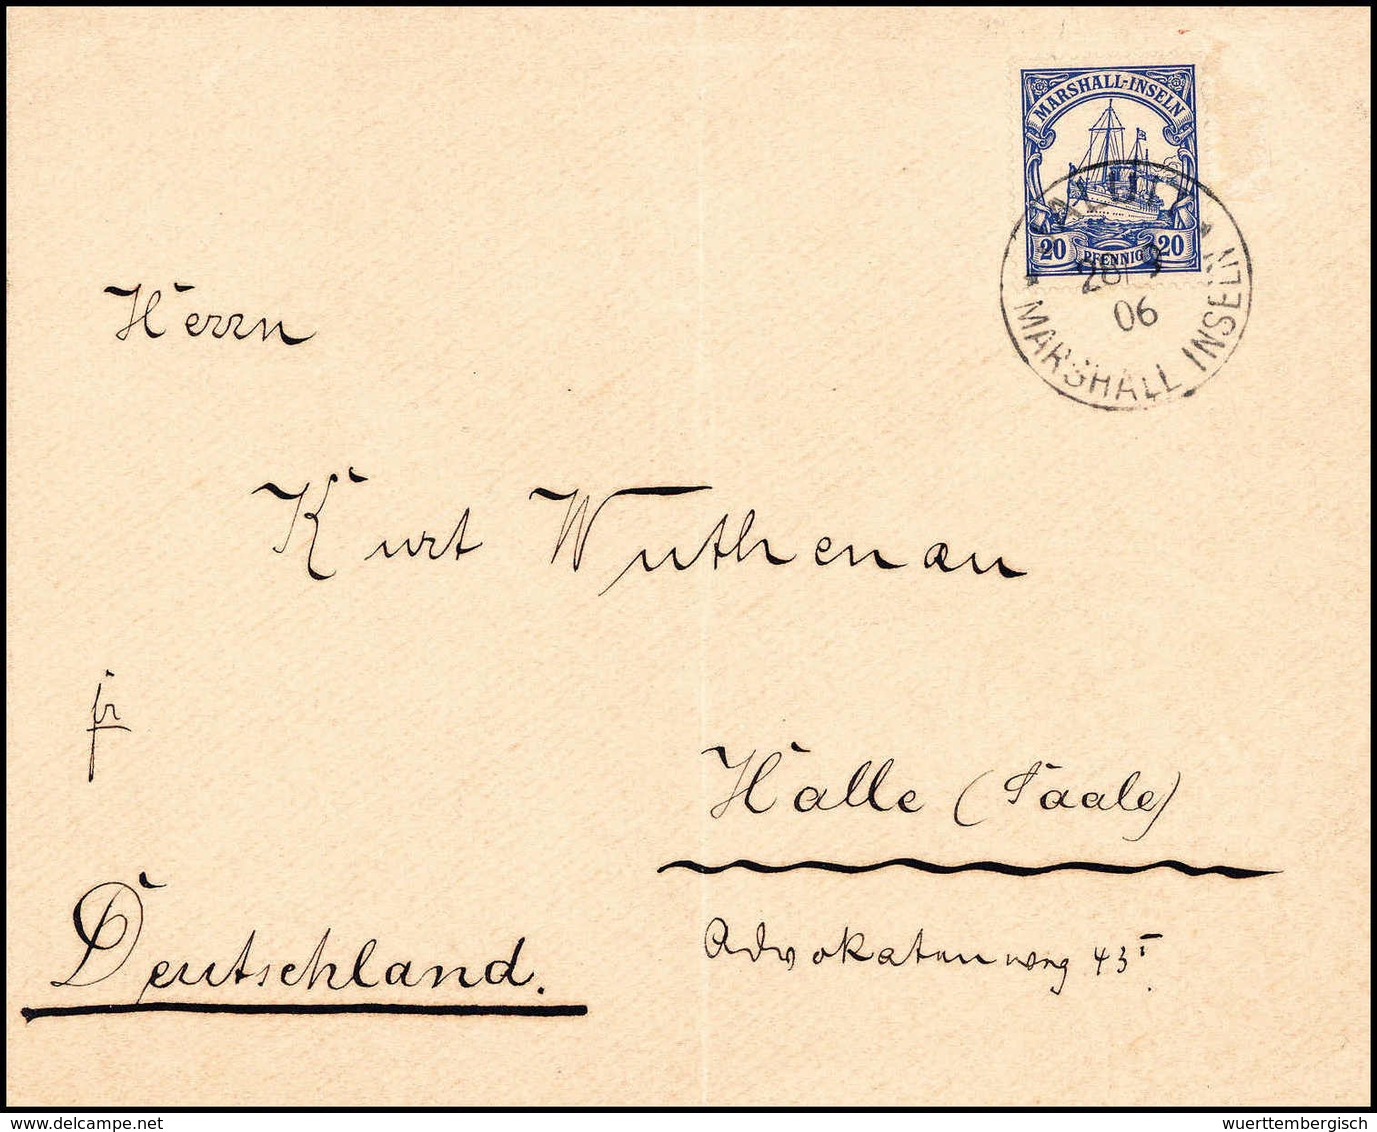 MARSHALL-INSELN
20 PFENNIG 20
JALUIT
06
MARSHALL INSELN
Herrn
Kurt Wuthenau
Halle (Saale)
Advokatenweg 43
Deutschland.
delcampe.net
wuerttembergisch